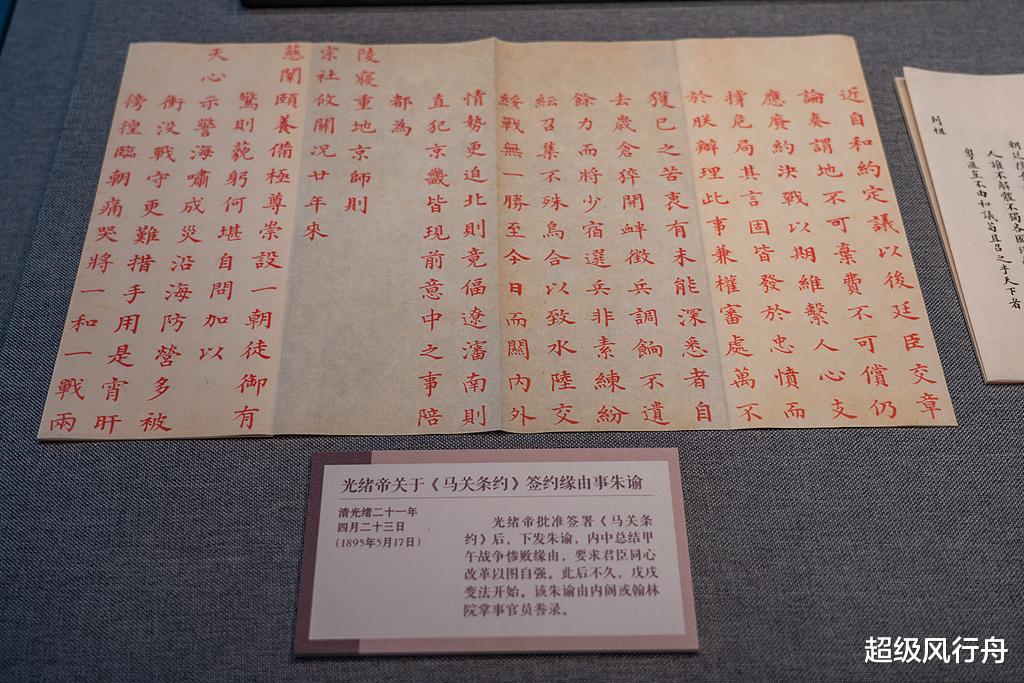 近自和約定議以後廷臣交章
論奏謂地不可棄費不可償仍
應廢約決戰以期維繫人心支
撐危局其言固皆發於忠憤而
於朕辦理此事兼權審處萬不
獲已之苦衷有未能深悉者自
去歲倉猝開衅徵兵調餉不遺
餘力而將少宿選兵非素練紛
紜召集不殊烏合以致水陸交
綏戰無一勝至今日而關內外
情勢更迫北則竟偪遼瀋南則
直犯京畿皆現前意中之事陪
都為
陵寢重地京師則
宗社攸關況廿年來
慈闈頤養備極尊崇設一朝徒御有
驚則藐躬何堪自問加以
天心示警海嘯成災沿海防營多被
衝沒戰守更難措手用是宵旰
徬徨臨朝痛哭將一和一戰兩
人誰不解體不獨各國
不由和議苟且召之乎天下者
列祖
光绪帝关于《马关条约》签约缘由事朱谕
清光绪二十一年
四月二十三日
(1895年5月17日)
光绪帝批准签署《马关条
约》后，下发朱谕，内中总结甲
午战争惨败缘由，要求君臣同心
改革以图自强。此后不久，戊戌
变法开始。该朱谕由内阁或翰林
院掌事官员誊录。
超级风行舟